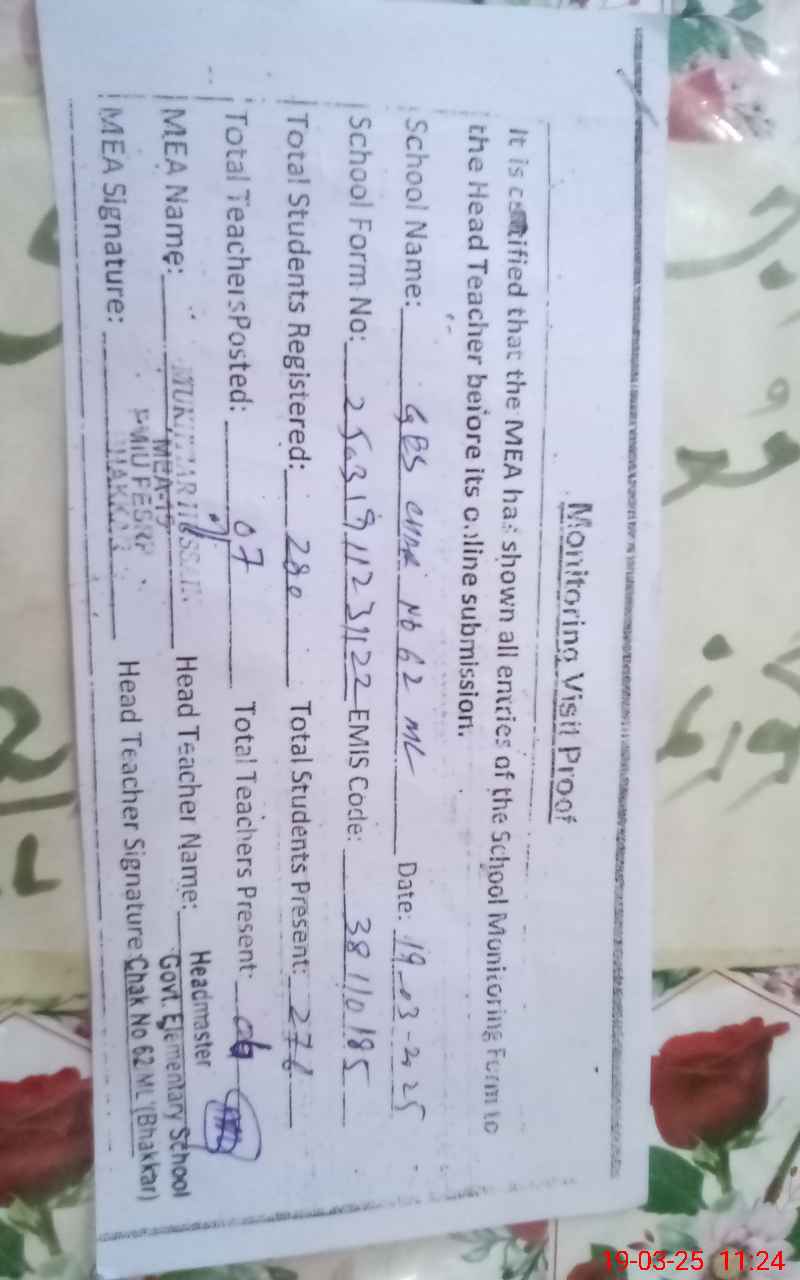 Monitoring Visit Proof
It is certified that the MEA has shown all entries of the School Monitoring Form to
the Head Teacher before its online submission.
School Name: GES CHAK No 62 ML Date: 19-03-2025
School Form No: 2503191123122 EMIS Code: 38110185
Total Students Registered: 280 Total Students Present: 276
Total TeachersPosted: 07 Total Teachers Present: 06
MEA Name: MUKHTAR HUSSAIN Head Teacher Name: Headmaster
MEA-15 Govt. Elementary School
MEA Signature: PMIU PESRP Head Teacher Signature: Chak No 62 ML (Bhakkar)
BHAKKAR
19-03-25 11:24